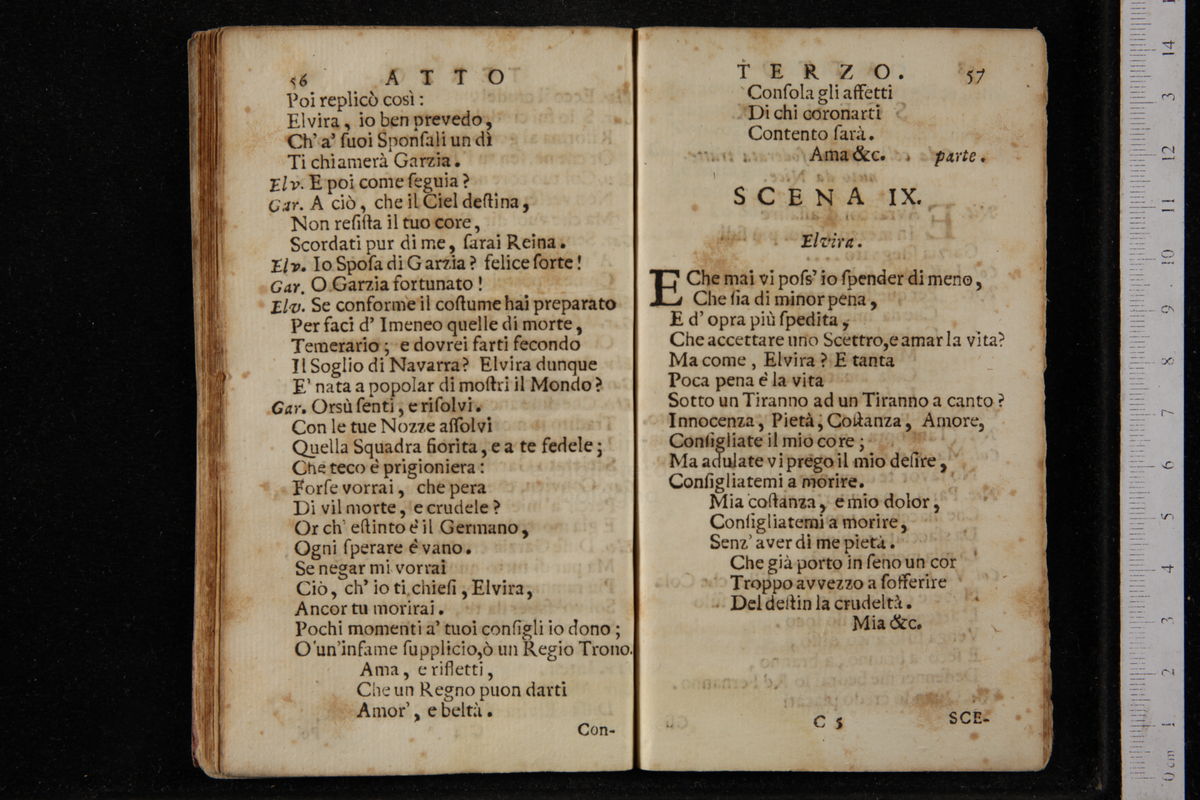 56 ATTO
Poi replicò così :
Elvira , io ben prevedo ,
Ch' a' ſuoi Sponſali un dì
Ti chiamerà Garzia .
Elv. E poi come ſeguia ?
Gar. A ciò , che il Ciel deſtina ,
Non reſiſta il tuo core ,
Scordati pur di me , ſarai Reina .
Elv. Io Spoſa di Garzia ? felice ſorte !
Gar. O Garzia fortunato !
Elv. Se conforme il coſtume hai preparato
Per faci d' Imeneo quelle di morte ,
Temerario ; e dovrei farti fecondo
Il Soglio di Navarra ? Elvira dunque
E' nata a popolar di moſtri il Mondo ?
Gar. Orsù ſenti , e riſolvi .
Con le tue Nozze aſſolvi
Quella Squadra fiorita , e a te fedele ;
Che teco è prigioniera :
Forſe vorrai , che pera
Di vil morte , e crudele ?
Or ch' eſtinto è il Germano ,
Ogni ſperare è vano .
Se negar mi vorrai
Ciò , ch' io ti chieſi , Elvira ,
Ancor tu morirai .
Pochi momenti a' tuoi conſigli io dono ;
O un' infame ſupplicio, ò un Regio Trono.
Ama , e rifletti ,
Che un Regno puon darti
Amor' , e beltà .
Con-
TERZO. 57
Conſola gli affetti
Di chi coronarti
Contento ſarà .
Ama &c. parte .
SCENA IX.
Elvira .
E Che mai vi poſs' io ſpender di meno ,
Che ſia di minor pena ,
E d' opra più ſpedita ,
Che accettare uno Scettro, e amar la vita?
Ma come , Elvira ? E tanta
Poca pena è la vita
Sotto un Tiranno ad un Tiranno a canto ?
Innocenza , Pietà , Coſtanza , Amore,
Conſigliate il mio core ;
Ma adulate vi prego il mio deſire ,
Conſigliatemi a morire.
Mia coſtanza , e mio dolor ,
Conſigliatemi a morire ,
Senz' aver di me pietà .
Che già porto in ſeno un cor
Troppo avvezzo a ſofferire
Del deſtin la crudeltà .
Mia &c.
C 5 SCE-
0 cm 1 2 3 4 5 6 7 8 9 10 11 12 3 14